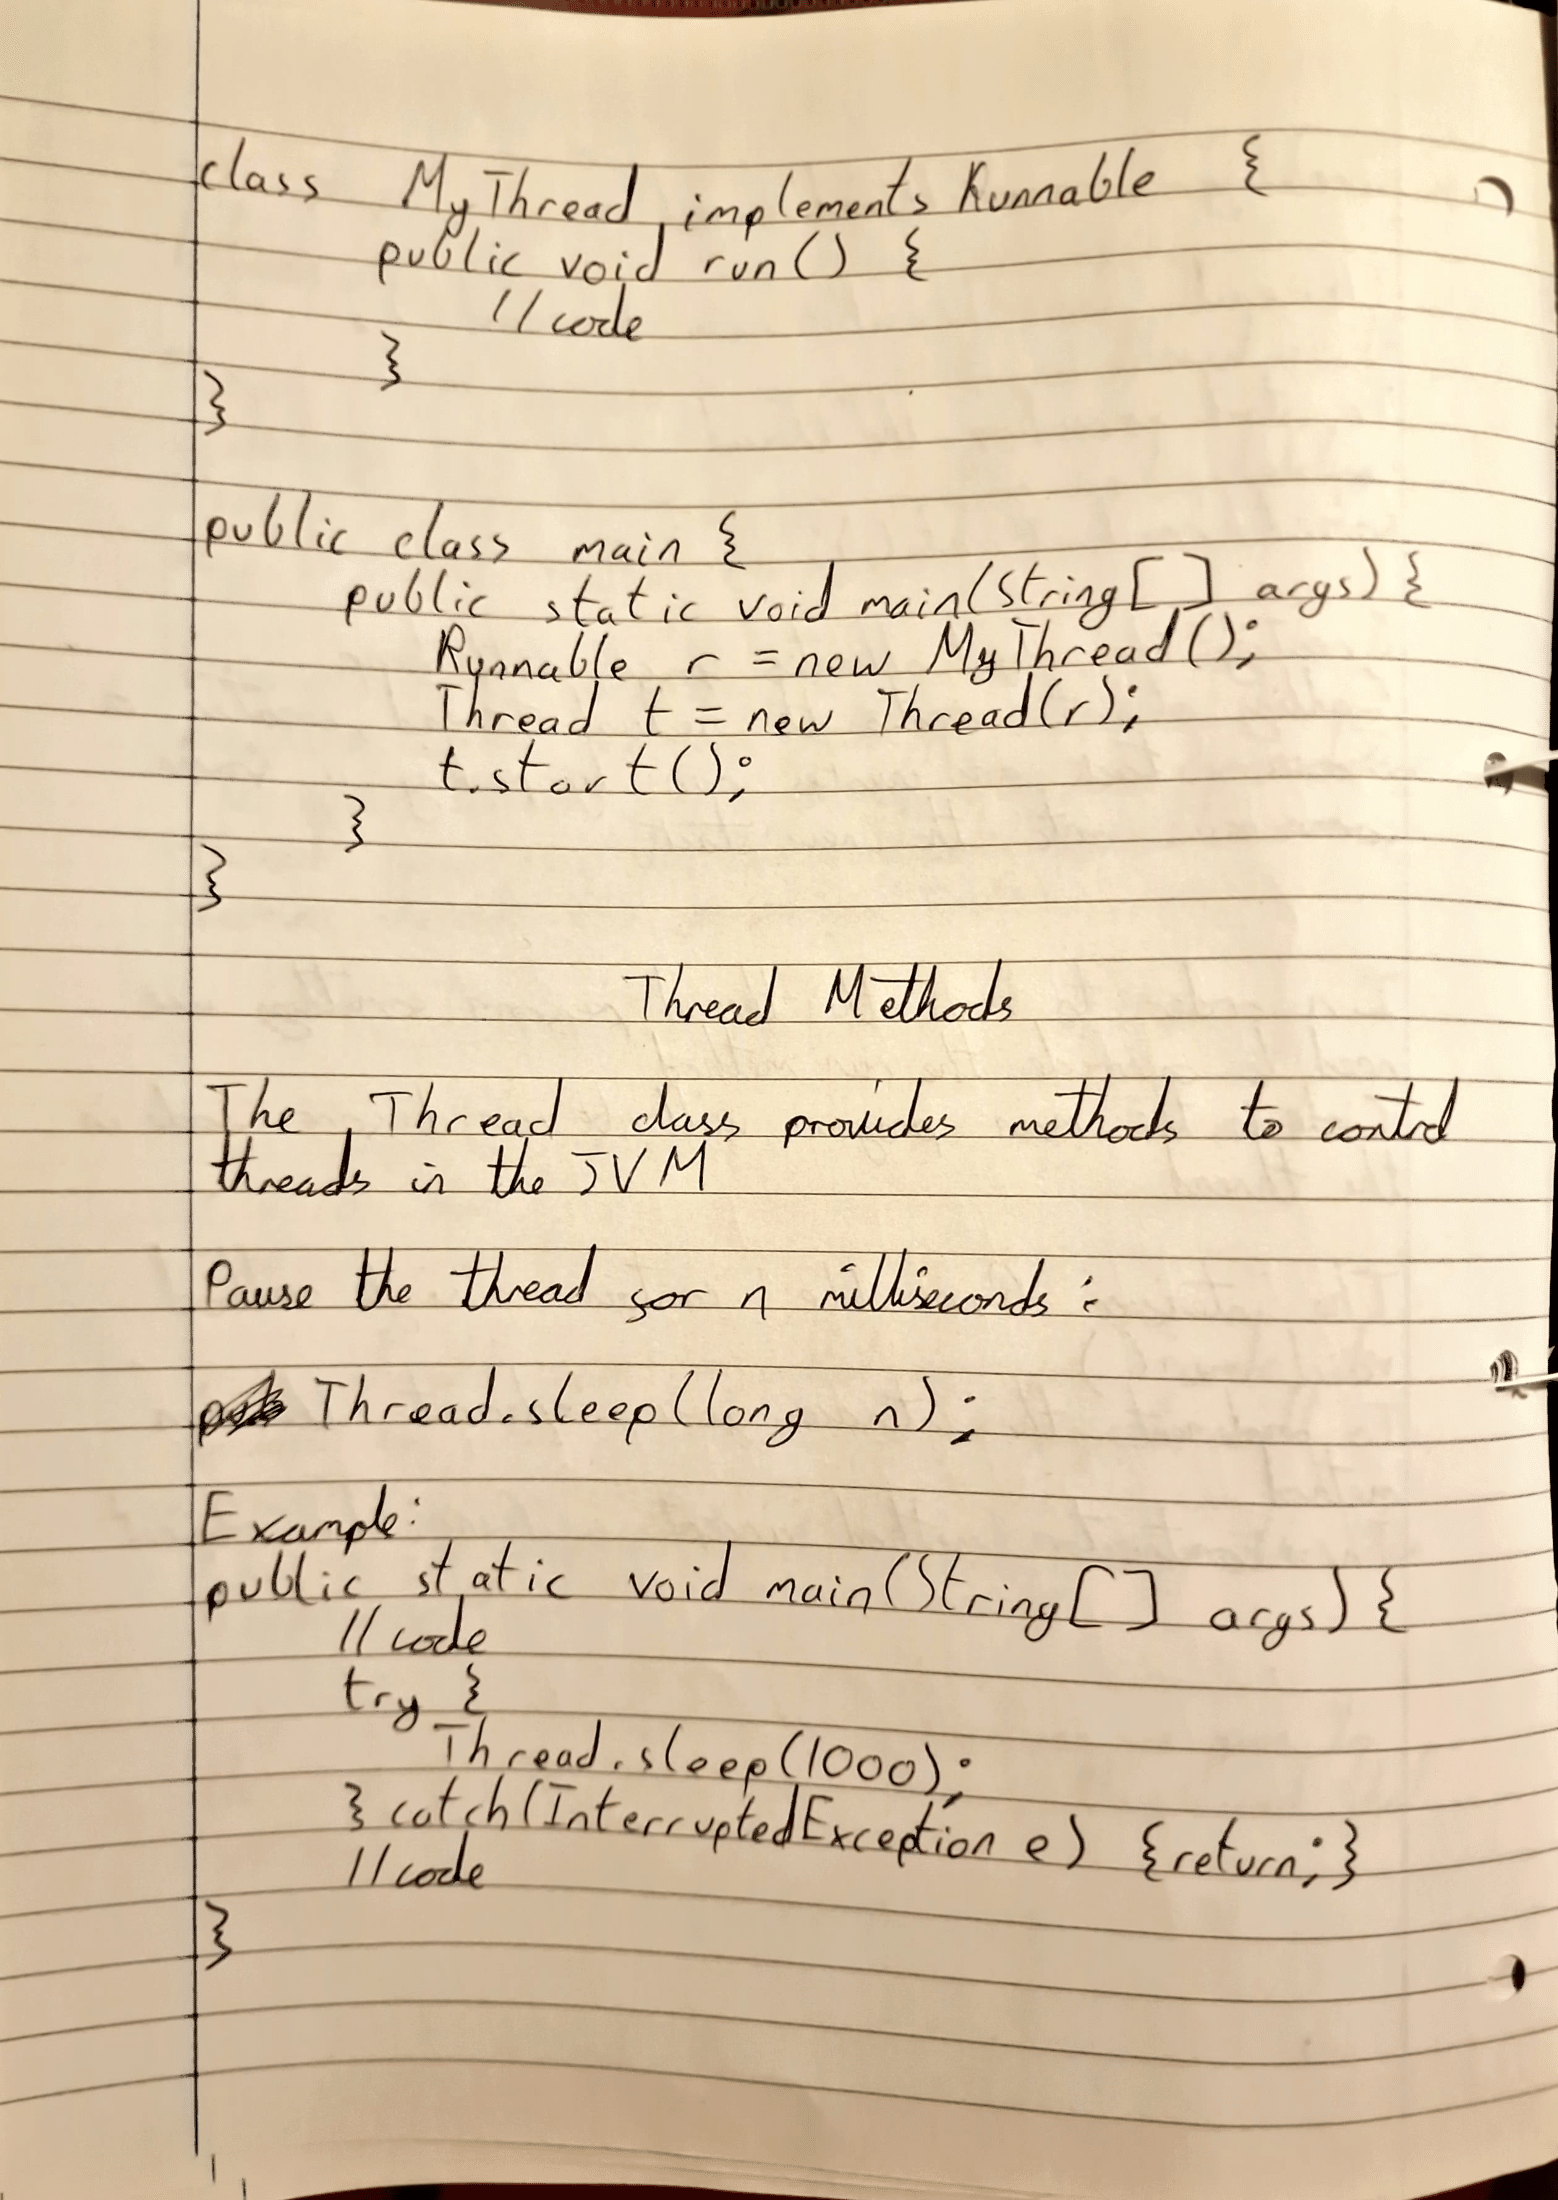 class MyThread implements Runnable {
public void run() {
//code
}
}
public class main {
public static void main(String[] args) {
Runnable r = new MyThread();
Thread t = new Thread(r);
t.start();
}
}
Thread Methods
The Thread class provides methods to control
threads in the JVM
Pause the thread for n milliseconds:
Thread.sleep(long n);
Example:
public static void main(String[] args) {
//code
try {
Thread.sleep(1000);
} catch(InterruptedException e) {return;}
//code
}